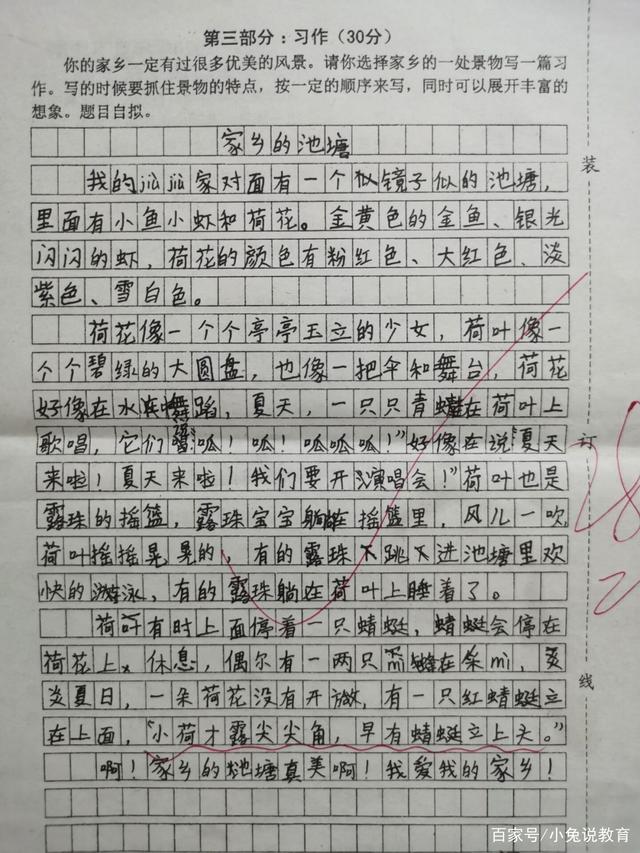 第三部分：习作（30分）
你的家乡一定有过很多优美的风景。请你选择家乡的一处景物写一篇习
作。写的时候要抓住景物的特点，按一定的顺序来写，同时可以展开丰富的
想象。题目自拟。
家乡的池塘
我的jiù jiu家对面有一个似镜子似的池塘，
里面有小鱼小虾和荷花。金黄色的金鱼、银光
闪闪的虾，荷花的颜色有粉红色、大红色、淡
紫色、雪白色。
荷花像一个个亭亭玉立的少女，荷叶像一
个个碧绿的大圆盘，也像一把伞和舞台，荷花
好像在水中舞蹈，夏天，一只只青蛙在荷叶上
歌唱，它们 呱！呱！呱呱呱！”好像在说“夏天
来啦！夏天来啦！我们要开演唱会！”荷叶也是
露珠的摇篮，露珠宝宝躺在摇篮里，风儿一吹，
荷叶摇摇晃晃的，有的露珠 跳下进池塘里欢
快的游泳，有的露珠躺在荷叶上睡着了。
荷叶有时上面停着一只蜻蜓，蜻蜓会停在
荷花上，休息，偶尔有一两只 在采mì，炎
炎夏日，一朵荷花没有开放，有一只红蜻蜓立
在上面，“小荷才露尖尖角，早有蜻蜓立上头。”
啊！家乡的池塘真美啊！我爱我的家乡！
装
订
线
28
百家号/小兔说教育